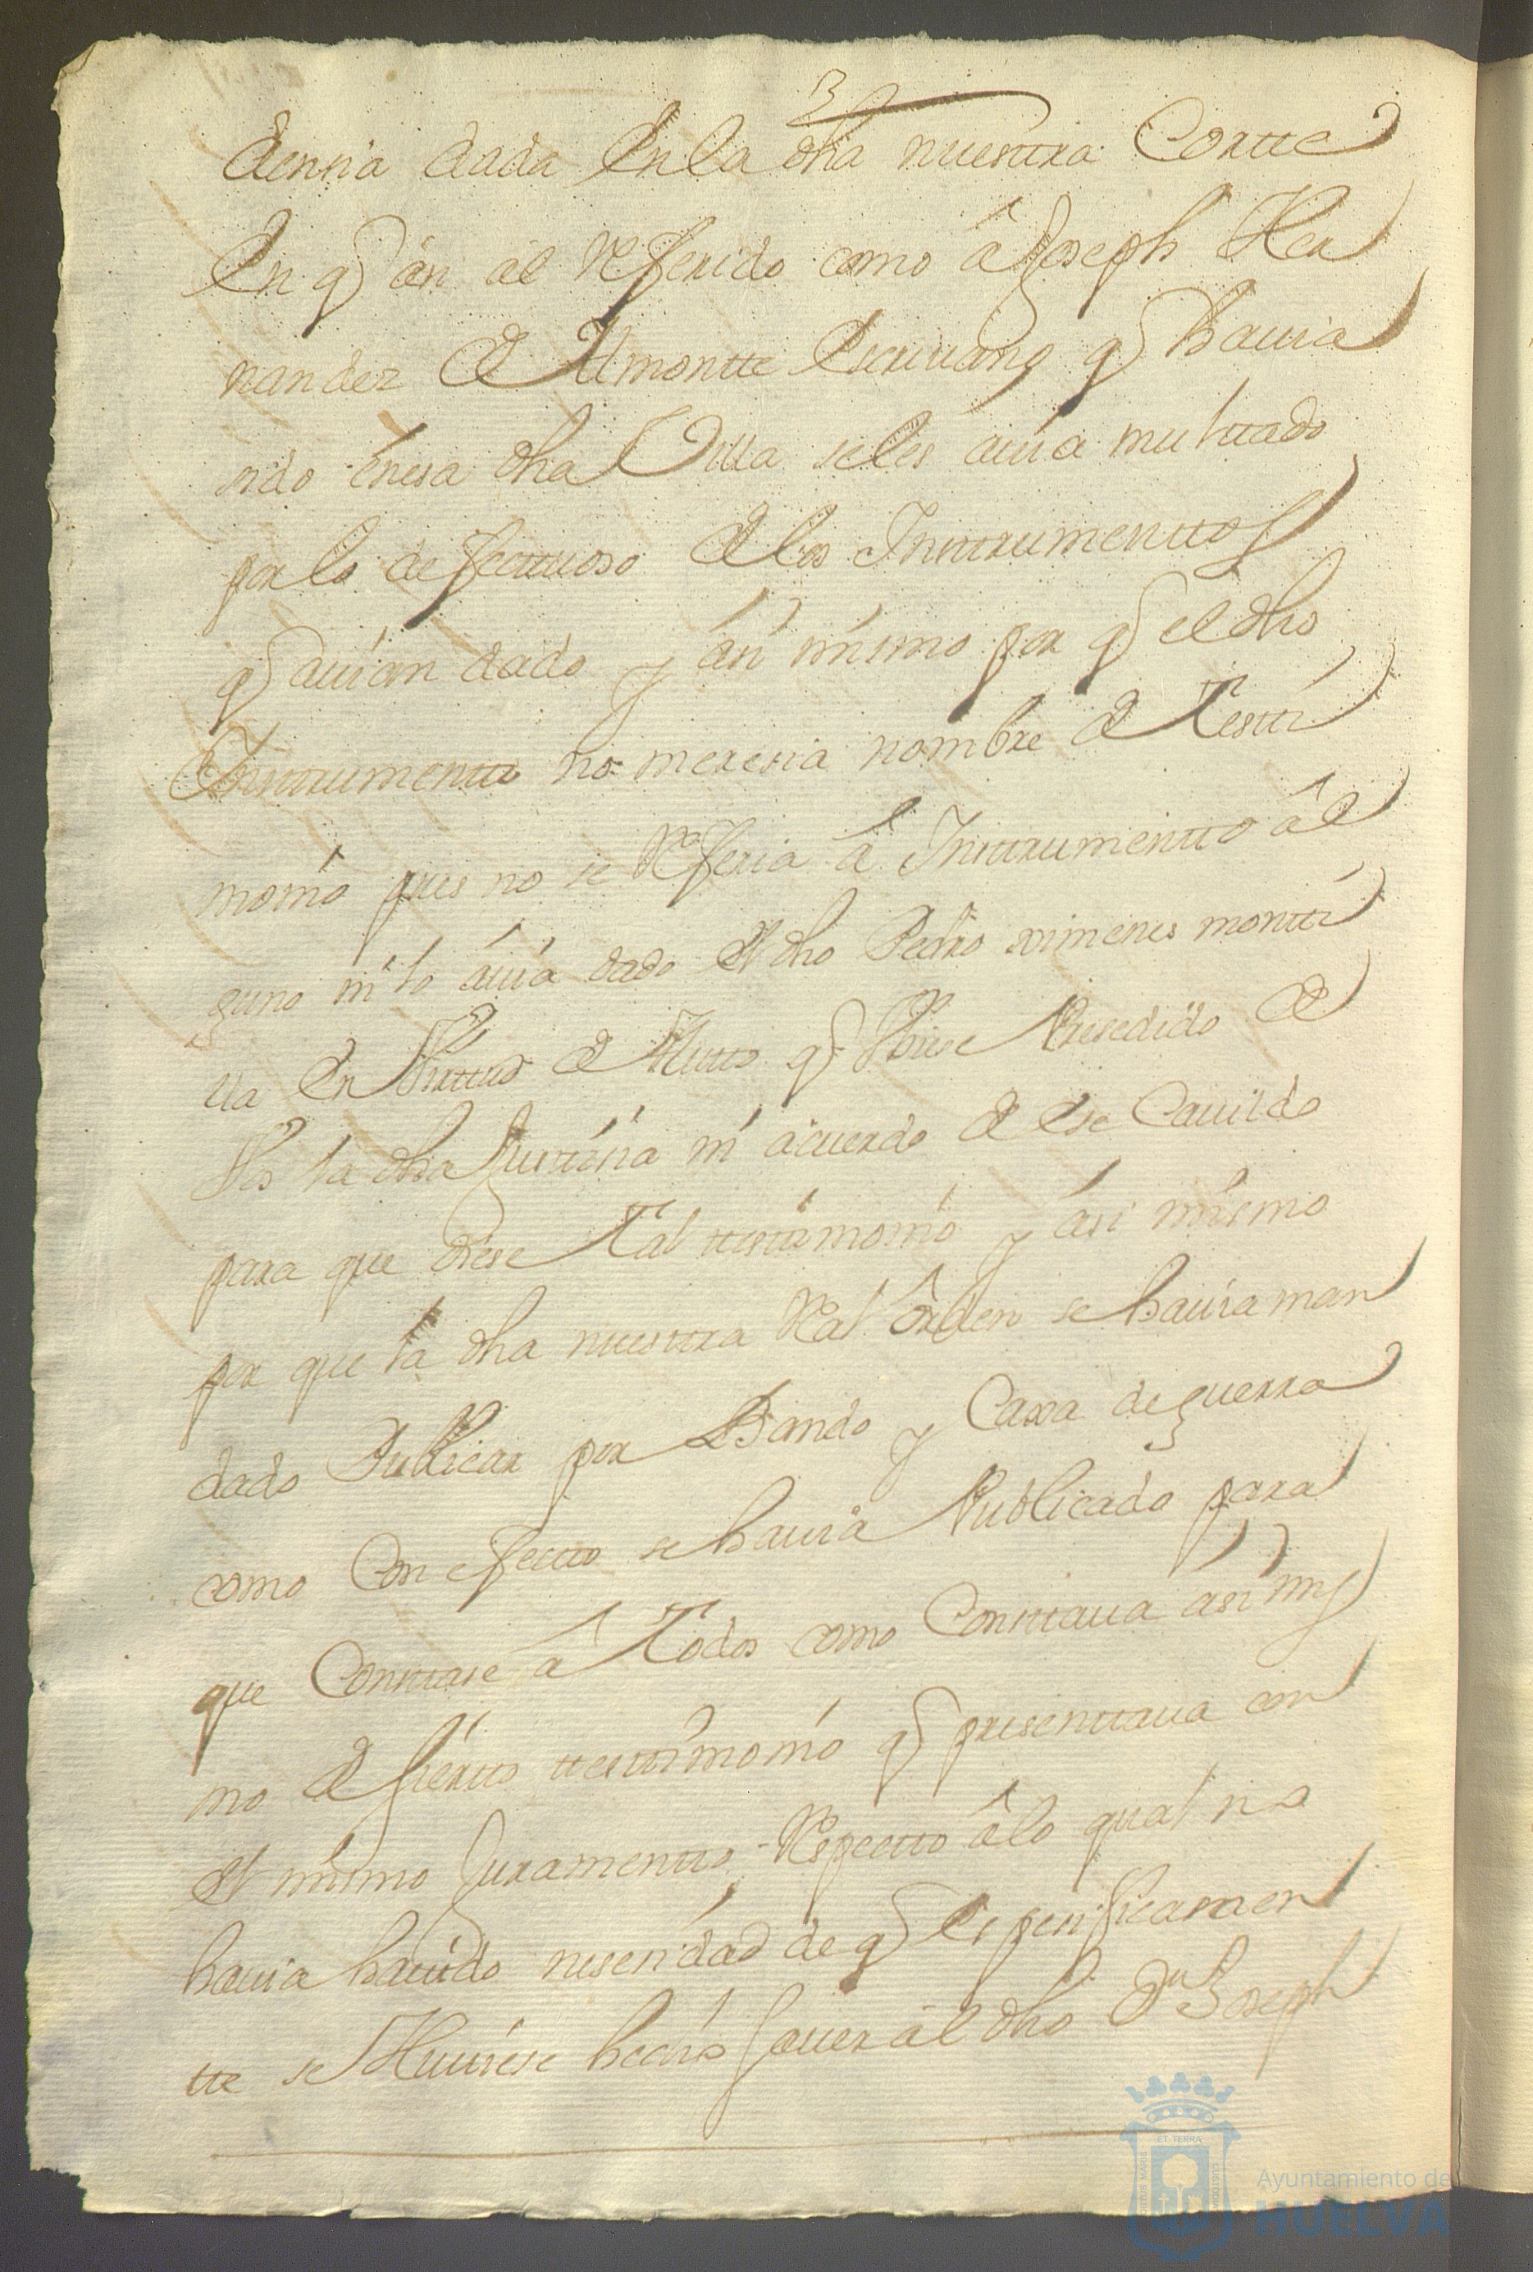 dencia dada En la dha nuestra Cortte
En q an al Referido como â Joseph Her
nandez de Almontte Escrivano q havia
sido en esa dha Villa se les avia multtado
por lo defecttuoso de los Instrumenttos
q avian dado y asi mismo por q el dho
Instrumentto no meresia nombre de Testti
monio pues no se Referia â Instrumentto âl
guno ni lo avia dado El dho Pedro ximenes montti
lla En Virttud de Autto q Vbiese Presedido de
Vos la dha Justtisia ni acuerdo de Ese Cavildo
para que diese Tal testtimonio y asi mismo
por que la dha nuestra Ral ôrden se havia man
dado Publicar por Bando y Caxa de guerra
como Con efectto se havia Publicado para
que Constase â Todos como Consttava asi mis
mo de sierto testtimonio q presenttava con
El mismo Juramentto, Respectto â lo qual no
havia havido nesesidad de q Espesificamen
tte se Huviese hecho saver âl dho Dn Joseph
ET TERRA
Ayuntamiento de
HUELVA